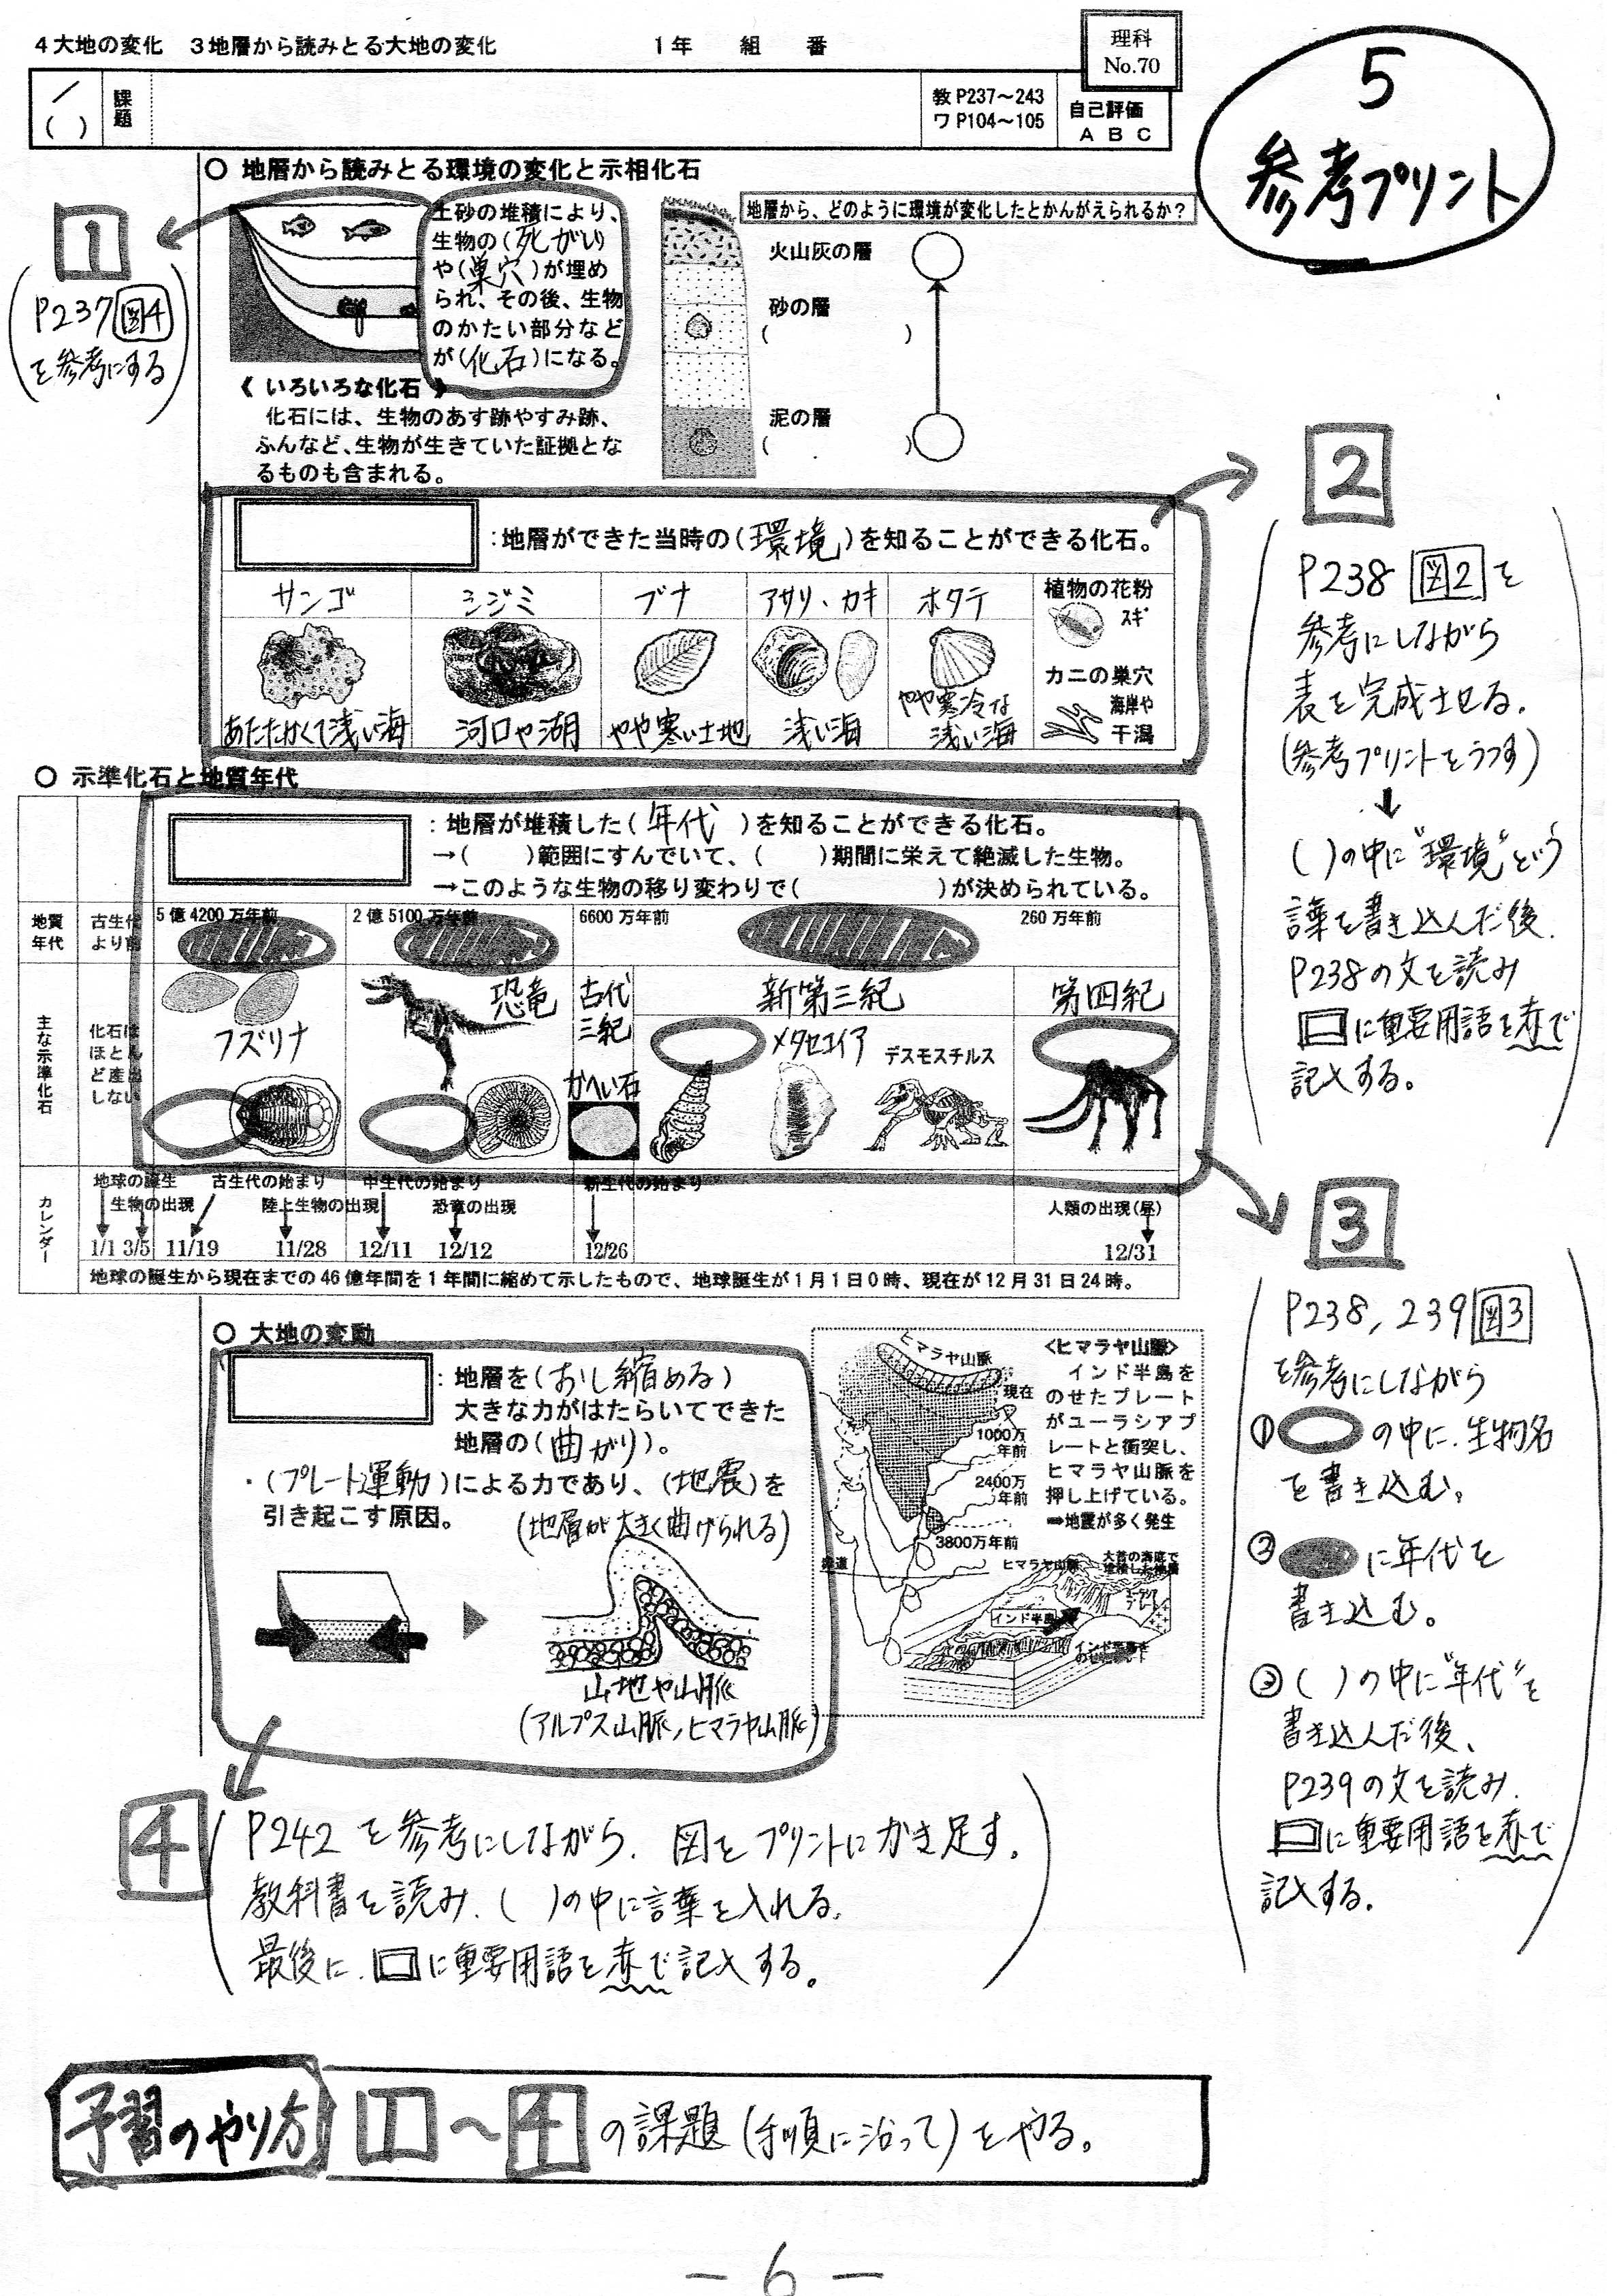 4大地の変化 3地層から読みとる大地の変化 1年 組 番
理科
No.70
/
( )
課題
教 P237～243
ワ P104～105
自己評価
A B C
5
参考プリント
○ 地層から読みとる環境の変化と示相化石
1
(P237 図4
を参考にする)
土砂の堆積により、
生物の(死がい)
や(巣穴)が埋め
られ、その後、生物
のかたい部分など
が(化石)になる。
《 いろいろな化石 》
化石には、生物のあす跡やすみ跡、
ふんなど、生物が生きていた証拠とな
るものも含まれる。
地層から、どのように環境が変化したとかんがえられるか？
火山灰の層
砂の層
( )
泥の層
( )
:地層ができた当時の(環境)を知ることができる化石。
サンゴ シジミ ブナ アサリ・カキ ホタテ
植物の花粉
スギ
カニの巣穴
海岸や
干潟
あたたかくて浅い海 河口や湖 やや寒い土地 浅い海
やや寒冷な
浅い海
2
(P238 図2を
参考にしながら
表を完成させる。
(参考プリントをうつす)
↓
( )の中に"環境"という
言葉を書き込んだ後、
P238の文を読み
□に重要用語を赤で
記入する。)
○ 示準化石と地質年代
:地層が堆積した(年代)を知ることができる化石。
→( )範囲にすんでいて、( )期間に栄えて絶滅した生物。
→このような生物の移り変わりで( )が決められている。
地質
年代
古生代
より前
5億4200万年前 2億5100万年前 6600万年前 260万年前
主な示準化石
化石は
ほとん
ど産出
しない
フズリナ
恐竜
古代
三紀
かへい石
新第三紀
メタセコイア
デスモスチルス
第四紀
カレンダー
地球の誕生 古生代の始まり 中生代の始まり 新生代の始まり
生物の出現 陸上生物の出現 恐竜の出現 人類の出現(昼)
1/1 3/5 11/19 11/28 12/11 12/12 12/26 12/31
地球の誕生から現在までの46億年間を1年間に縮めて示したもので、地球誕生が1月1日0時、現在が12月31日24時。
3
(P238, 239 図3
を参考にしながら
① の中に、生物名
を書き込む。
② に年代を
書き込む。
③ ( )の中に"年代"を
書き込んだ後、
P239の文を読み、
□に重要用語を赤で
記入する。)
○ 大地の変動
:地層を(おし縮める)
大きな力がはたらいてできた
地層の(曲がり)。
・(プレート運動)による力であり、(地震)を
引き起こす原因。
(地層が大きく曲げられる)
山地や山脈
(アルプス山脈、ヒマラヤ山脈)
ヒマラヤ山脈
現在
1000万
年前
2400万
年前
3800万年前
赤道
<ヒマラヤ山脈>
インド半島を
のせたプレート
がユーラシアプ
レートと衝突し、
ヒマラヤ山脈を
押し上げている。
⇒地震が多く発生
ヒマラヤ山脈
インド半島
4
(P242 を参考にしながら、図をプリントにかき足す。
教科書を読み、( )の中に言葉を入れる。
最後に、□に重要用語を赤で記入する。)
予習のやり方 1～4の課題(手順に沿って)をやる。
- 6 -